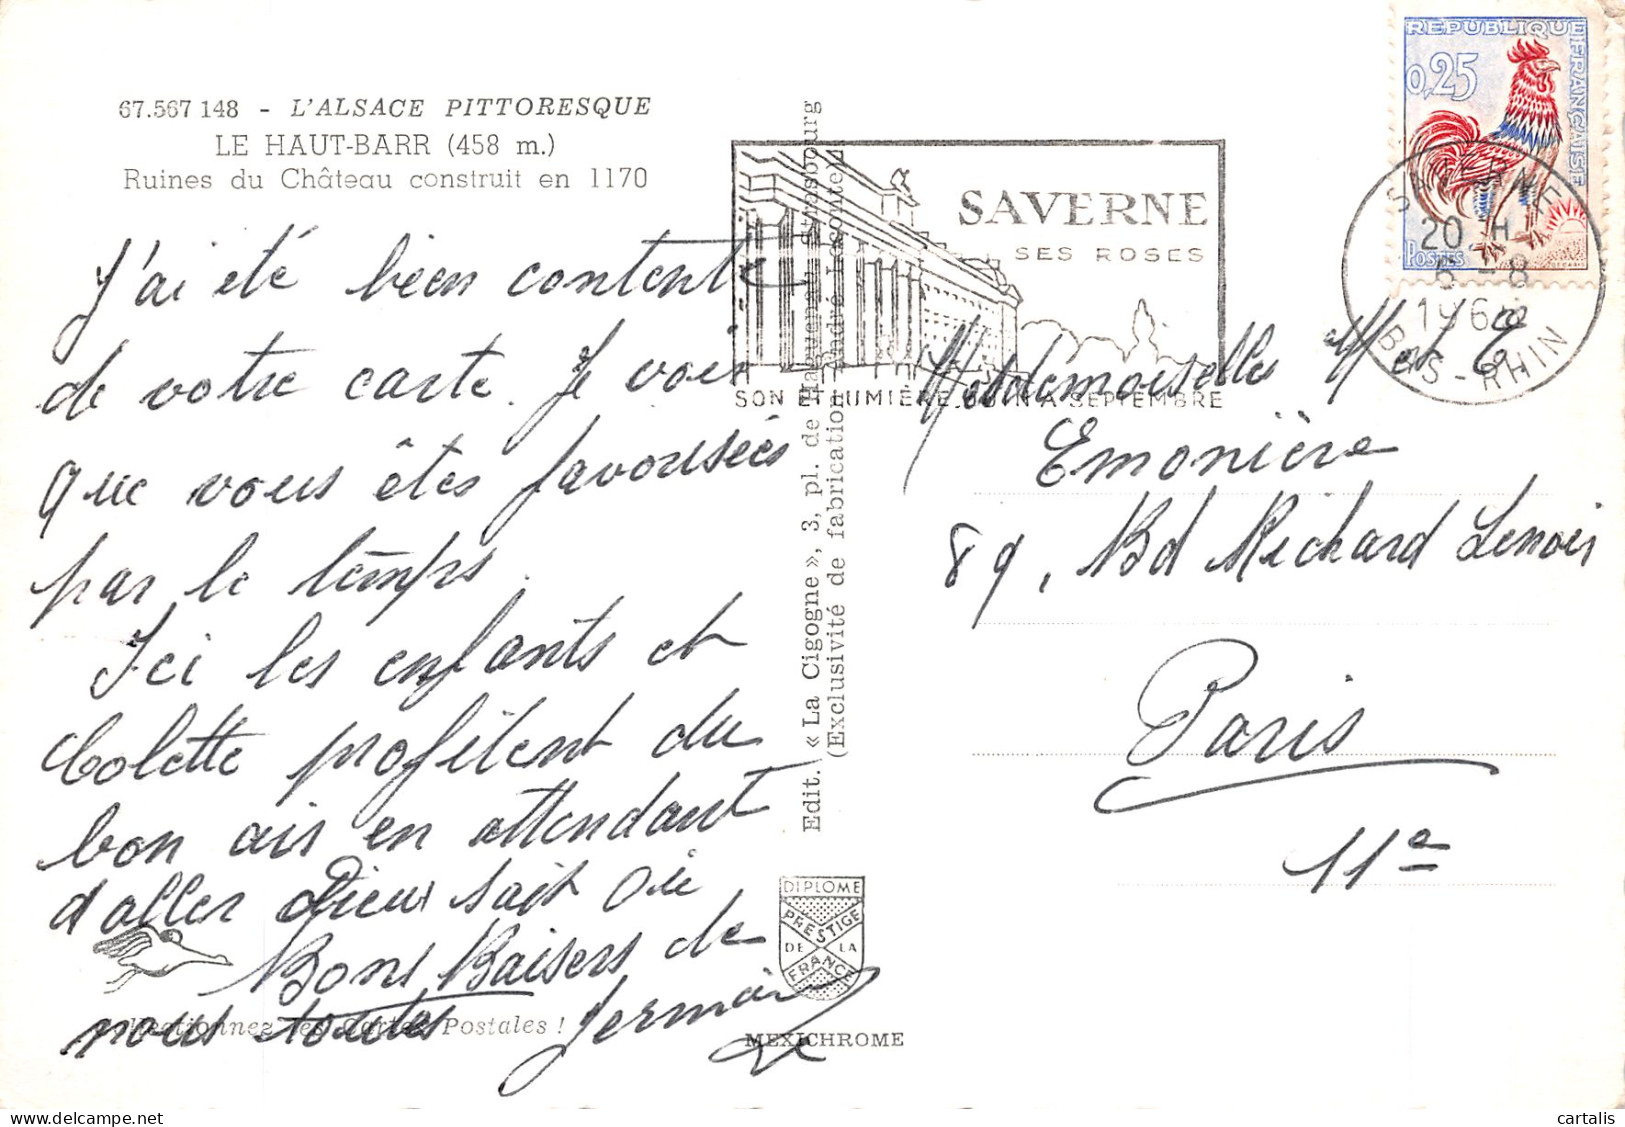 67.567 148 - L'ALSACE PITTORESQUE
LE HAUT-BARR (458 m.)
Ruines du Château construit en 1170
J'ai été bien contente
de votre carte. Je vois
que vous êtes favorisées
par le temps.
Ici les enfants et
Colette profitent du
bon air en attendant
d'aller Dieu sait où
Bons Baisers de
nous toutes Germaine
Collectionnez les Cartes Postales !
Edit. « La Cigogne », 3, pl. de Haguenau, Strasbourg
(Exclusivité de fabrication André Lesconte
DIPLOME
PRESTIGE
DE LA
FRANCE
MEXICHROME
SAVERNE
SES ROSES
SON ET LUMIÈRE JUIN A SEPTEMBRE
REPUBLIQUE FRANÇAISE
0,25
POSTES
DECARIS
SAVERNE
20 H
6 - 8
196
BAS-RHIN
Mesdemoiselles M et G
Emonière
89, Bd Richard Lenoir
Paris
11e
cartalis